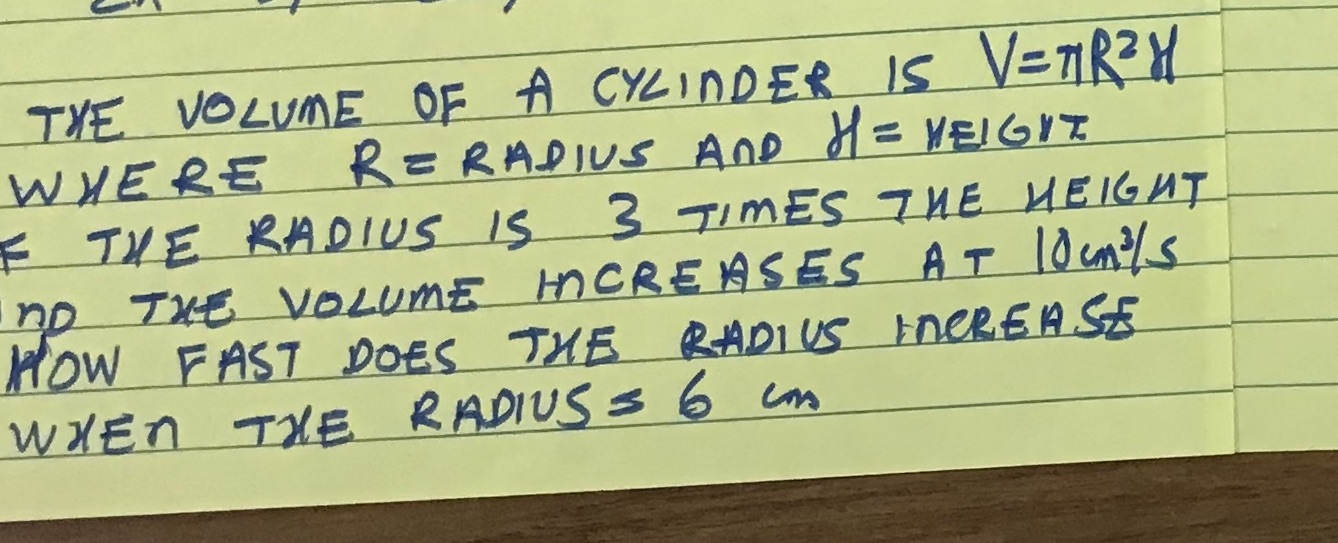 THE VOLUME OF A CYLINDER IS V=πR²H
WHERE R=RADIUS AND H=HEIGHT
F THE RADIUS IS 3 TIMES THE HEIGHT
ND THE VOLUME INCREASES AT 10cm³/s
HOW FAST DOES THE RADIUS INCREASE
WHEN THE RADIUS = 6 cm